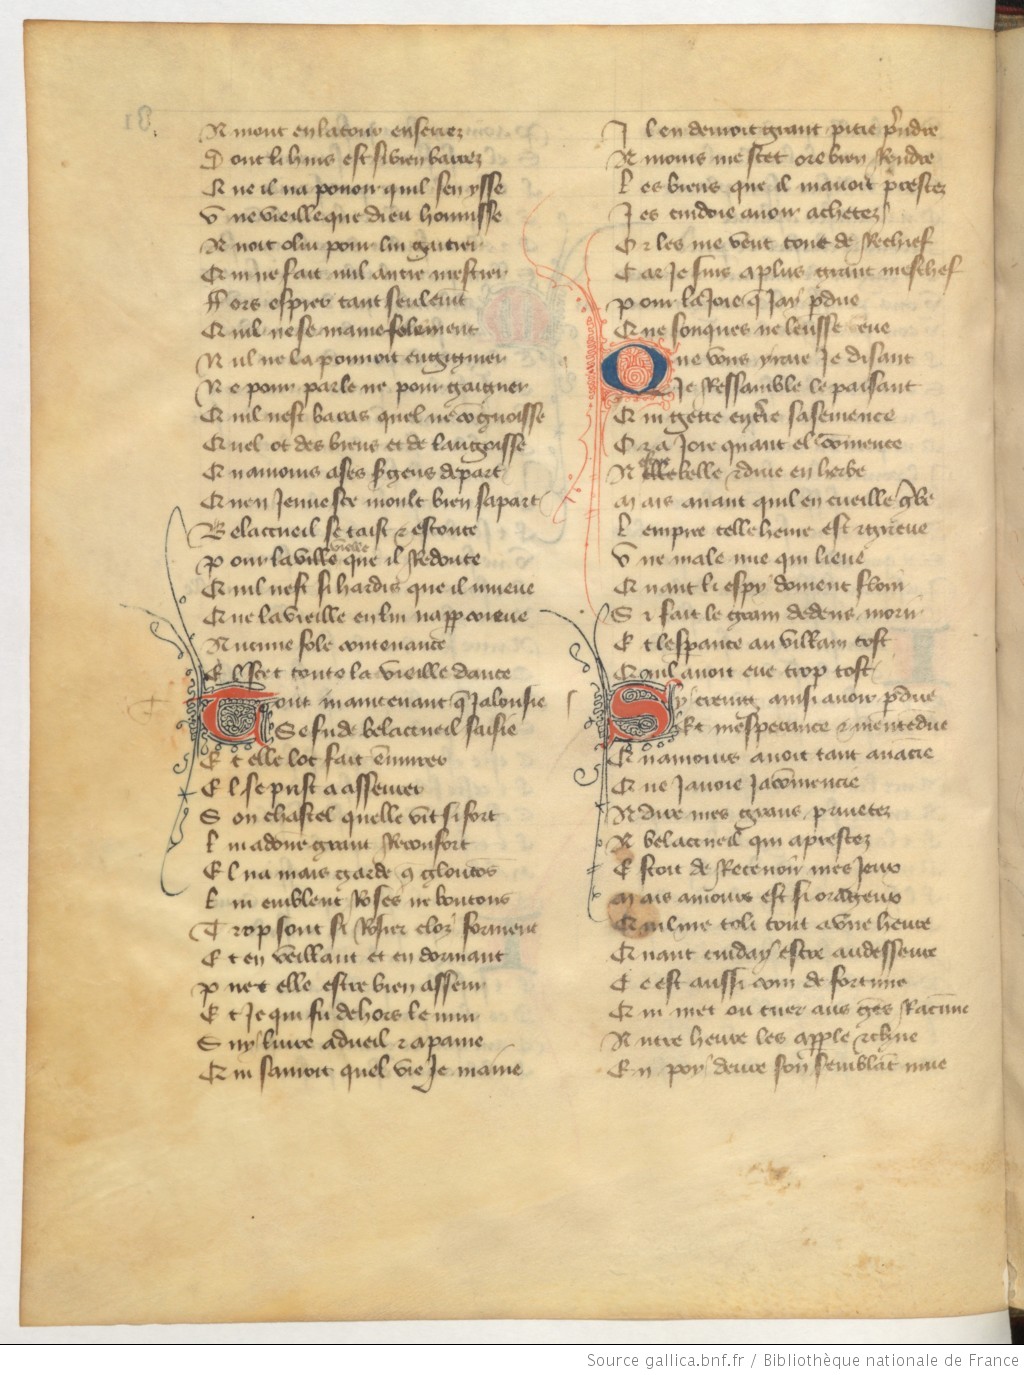 A mont en la tour enserrez
Dont li huis est si bien barrez
Et ne il na pouoir quil sen ysse
Une vieille que dieu honnisse
Auoit o lui pour lui gaitier
Qui ne fait nul autre mestier
Fors espier tant seulemt
Quil ne se maine folement
Nul ne la pourroit engignier
Ne pour parle ne pour gaignier
Quil nest baras quel ne cognoisse
Quel ot des biens et de langoisse
Quamours a ses sergens depart
Quen jeunesce moult bien sa part
Belaccueil se taist et escoute
Pour la ville vielle que il redoute
Quil nest si hardis que il mueue
Que la vieille en lui napparcoiue
Aucune fole contenance
Elscet toute la vieille dance
Tout maintenant q Jalousie
Se fu de belaccueil saisie
Et elle lot fait emmurer
El se prist a asseurer
Son chastel quelle vit si fort
Lui a donne grant reconfort
El na mais garde q gloutos
Lui emblent Roses ne boutons
Trop sont li Rosier clos forment
Et en veillant et en dormant
Puet elle estre bien asseur
Et Je qui fu dehors le mur
Suy liure a dueil et a paine
Qui sauroit quel vie Je maine
Il en deuroit grant pitie prendre
Amours me scet ore bien Rendre
Les biens que il mauoit prestez
Jes cuidoie auoir achetez
Or les me vent tout de Rechief
Car Je suis a plus grant meschef
Pour la Joie q Jay pdue
Que sonques ne leusse eue
Que vous yraie Je disant
Je Ressamble le paisant
Qui gette en tre sa semence
Et a Joie quant el comence
A estre belle et drue en herbe
Mais auant quil en cueille gerbe
Lempire telle heure est et grieue
Une male nue qui lieue
Quant li espy doiuent florir
Si fait le grain dedens morir
Et lespance au villain tost
Quil auoit eue trop tost
Sy creing ainsi auoir pdue
Et mesperance et mentedue
Quamours auoit tant auacie
Que Jauoie Ja comencie
A dire mes grans priuetez
A belaccueil qui aprestez
Estoit de Receuoir mes Jeux
Mais amours est si orageux
Quil me toli tout a vne heure
Quant cuiday estre audesseure
Ce est aussi com de fortune
Qui met ou cuer aus gens Racune
Autre heure les apple et chue
En poy deure son semblat mue
Source gallica.bnf.fr / Bibliothèque nationale de France